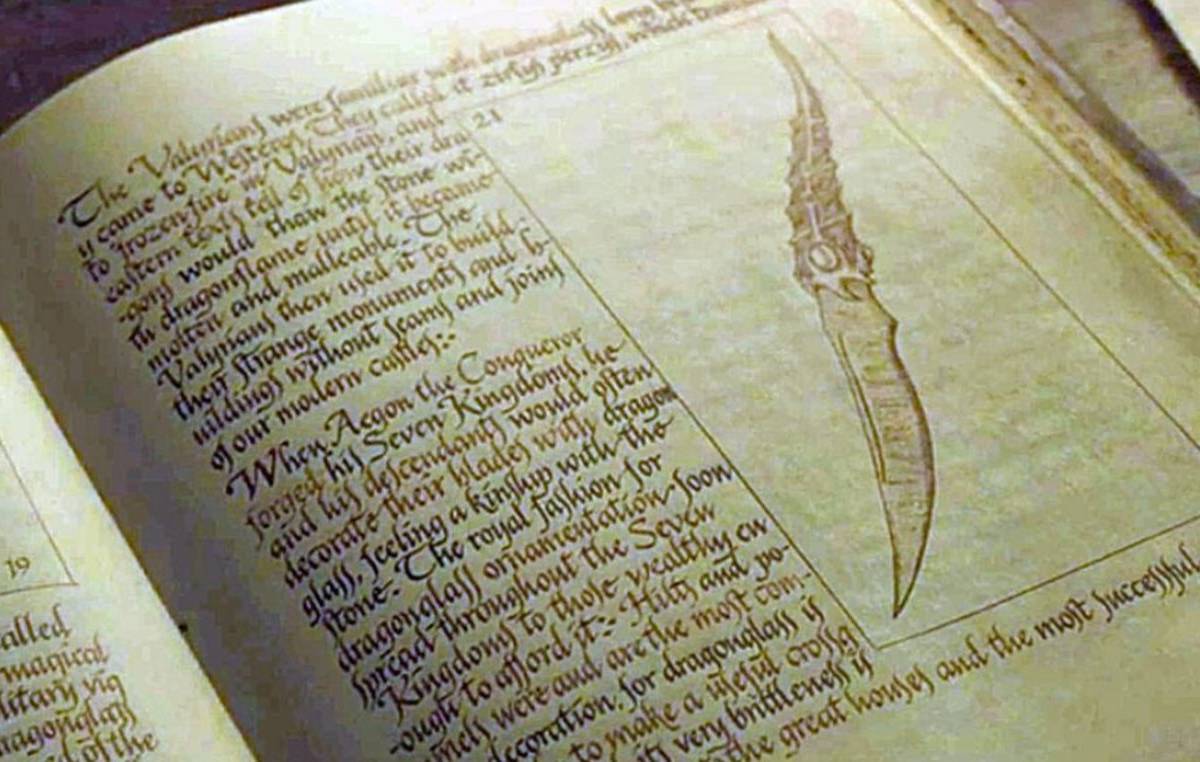 19
alled
magical
litary vig
ragonglass
ed of the
The Valyrians were familiar with dragonglass long be
y came to Westeros. They called it zirtys perzys, which
to frozen fire in Valyrian, and
eastern texts tell of how their dra
-gons would thaw the stone wi-
th dragonflame until it became
molten and malleable. The
Valyrians then used it to build
their strange monuments and b-
uildings without seams and joins
of our modern castles:-
When Aegon the Conqueror
forged his Seven Kingdoms, he
and his descendants would often
decorate their blades with dragon
glass, feeling a kinship with the
stone. The royal fashion for
dragonglass ornamentation soon
spread throughout the Seven
Kingdoms to those wealthy en
-ough to afford it:- Hilts and po-
mels were and are the most com-
decoration, for dragonglass is
to make a useful crossg
its very brittleness is
the great houses and the most successful
21